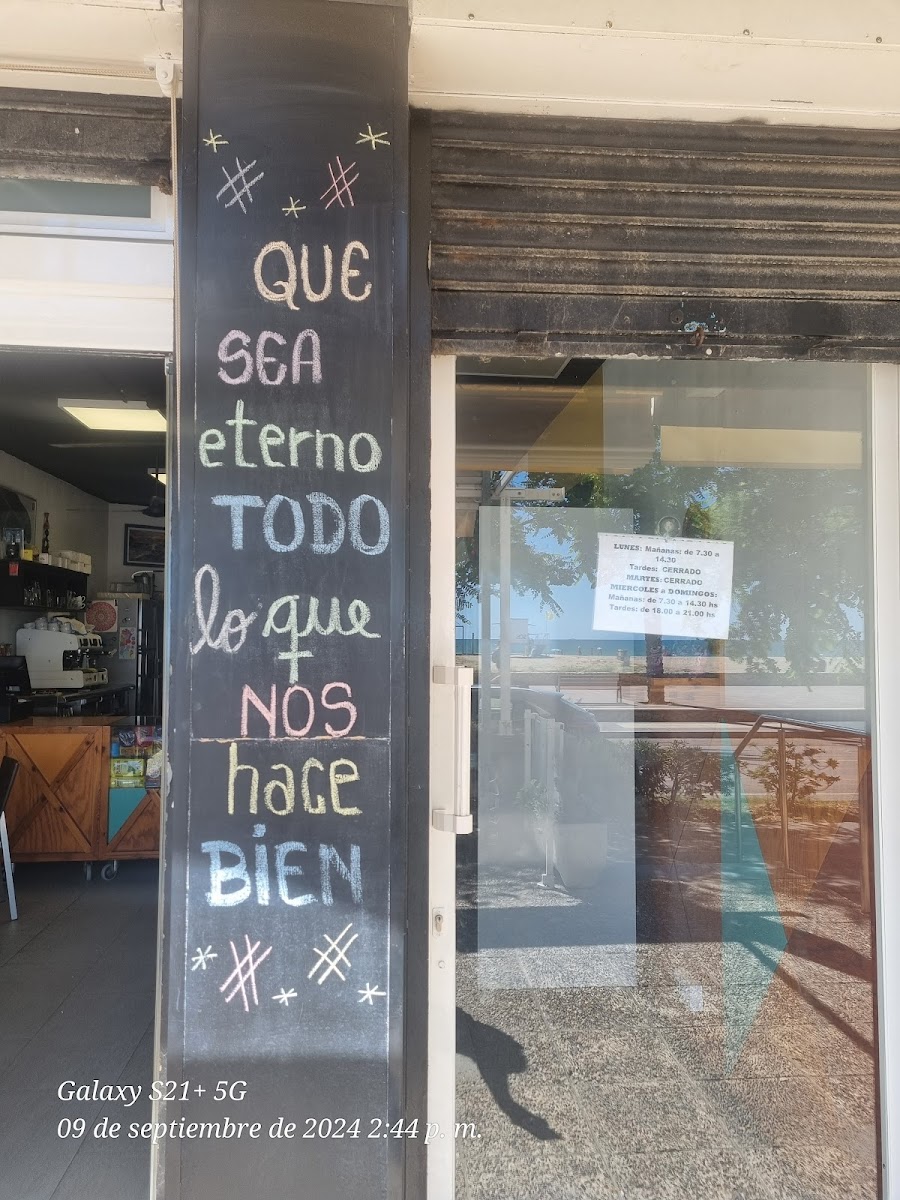 QUE
SEA
eterno
TODO
lo que
NOS
hace
BIEN
LUNES: Mañanas: de 7.30 a
14.30
Tardes: CERRADO
MARTES: CERRADO
MIERCOLES a DOMINGOS:
Mañanas: de 7.30 a 14.30 hs
Tardes: de 18.00 a 21.00 hs
Galaxy S21+ 5G
09 de septiembre de 2024 2:44 p. m.